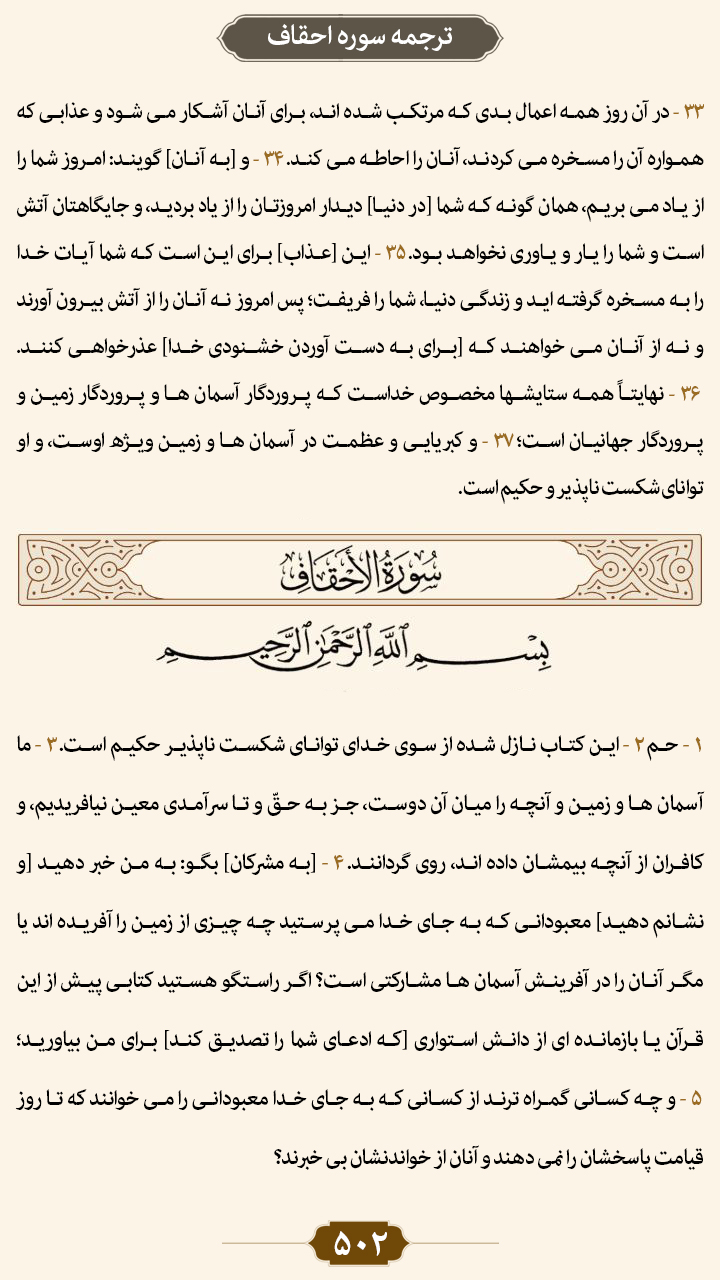 ترجمه سوره احقاف
۳۳ - در آن روز همه اعمال بدی که مرتکب شده اند، برای آنان آشکار می شود و عذابی که
همواره آن را مسخره می کردند، آنان را احاطه می کند. ۳۴ - و [به آنان] گویند: امروز شما را
از یاد می بریم، همان گونه که شما [در دنیا] دیدار امروزتان را از یاد بردید، و جایگاهتان آتش
است و شما را یار و یاوری نخواهد بود. ۳۵ - این [عذاب] برای این است که شما آیات خدا
را به مسخره گرفته اید و زندگی دنیا، شما را فریفت؛ پس امروز نه آنان را از آتش بیرون آورند
و نه از آنان می خواهند که [برای به دست آوردن خشنودی خدا] عذرخواهی کنند.
۳۶ - نهایتاً همه ستایشها مخصوص خداست که پروردگار آسمان ها و پروردگار زمین و
پروردگار جهانیان است؛ ۳۷ - و کبریایی و عظمت در آسمان ها و زمین ویژه اوست، و او
توانای شکست ناپذیر و حکیم است.
سُورَةُ الأَحْقَافِ
بِسْمِ اللَّهِ الرَّحْمَٰنِ الرَّحِيمِ
۱ - حم ۲ - این کتاب نازل شده از سوی خدای توانای شکست ناپذیر حکیم است. ۳ - ما
آسمان ها و زمین و آنچه را میان آن دوست، جز به حقّ و تا سرآمدی معین نیافریدیم، و
کافران از آنچه بیمشان داده اند، روی گردانند. ۴ - [به مشرکان] بگو: به من خبر دهید [و
نشانم دهید] معبودانی که به جای خدا می پرستید چه چیزی از زمین را آفریده اند یا
مگر آنان را در آفرینش آسمان ها مشارکتی است؟ اگر راستگو هستید کتابی پیش از این
قرآن یا بازمانده ای از دانش استواری [که ادعای شما را تصدیق کند] برای من بیاورید؛
۵ - و چه کسانی گمراه ترند از کسانی که به جای خدا معبودانی را می خوانند که تا روز
قیامت پاسخشان را نمی دهند و آنان از خواندنشان بی خبرند؟
۵۰۲